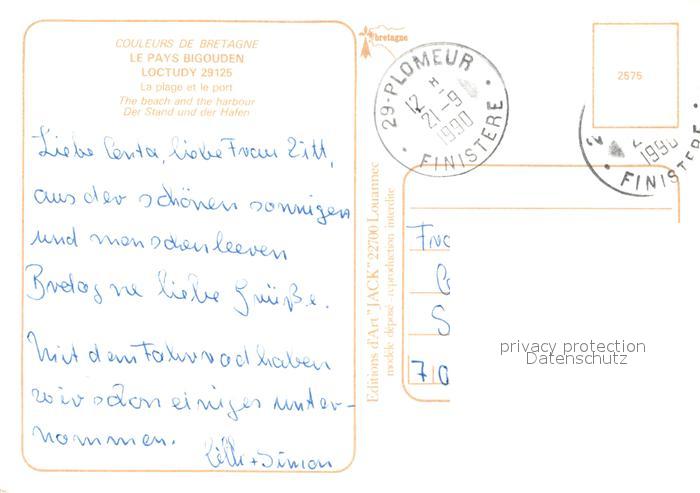 COULEURS DE BRETAGNE
LE PAYS BIGOUDEN
LOCTUDY 29125
La plage et le port
The beach and the harbour
Der Stand und der Hafen
Liebe Centa, liebe Frau Zitt,
aus der schönen sonnigen
und menschenleeren
Bretagne liebe Grüße.
Mit dem Fahrrad haben
wir schon einiges unter-
nommen.
+ Simon
bretagne
29-PLOMEUR
12 H
21-9
1990
FINISTERE
2575
1990
FINISTERE
Editions d'Art "JACK" 22700 Louannec
modèle déposé - reproduction interdite
Fra
S
710
privacy protection
Datenschutz